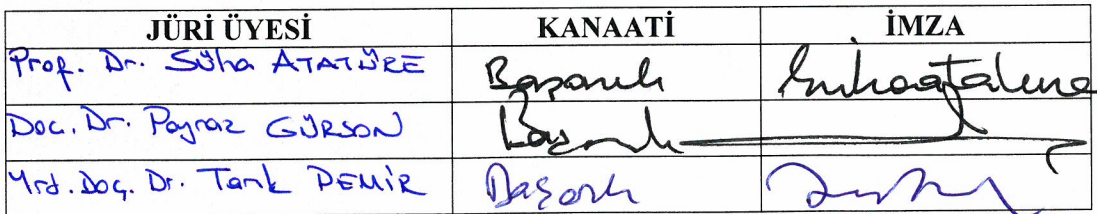 JÜRİ ÜYESİ KANAATİ İMZA
Prof. Dr. Süha ATATÜRE Başarılı
Doç. Dr. Poyraz GÜRSON Başarılı
Yrd. Doç. Dr. Tarık DEMİR Başarılı